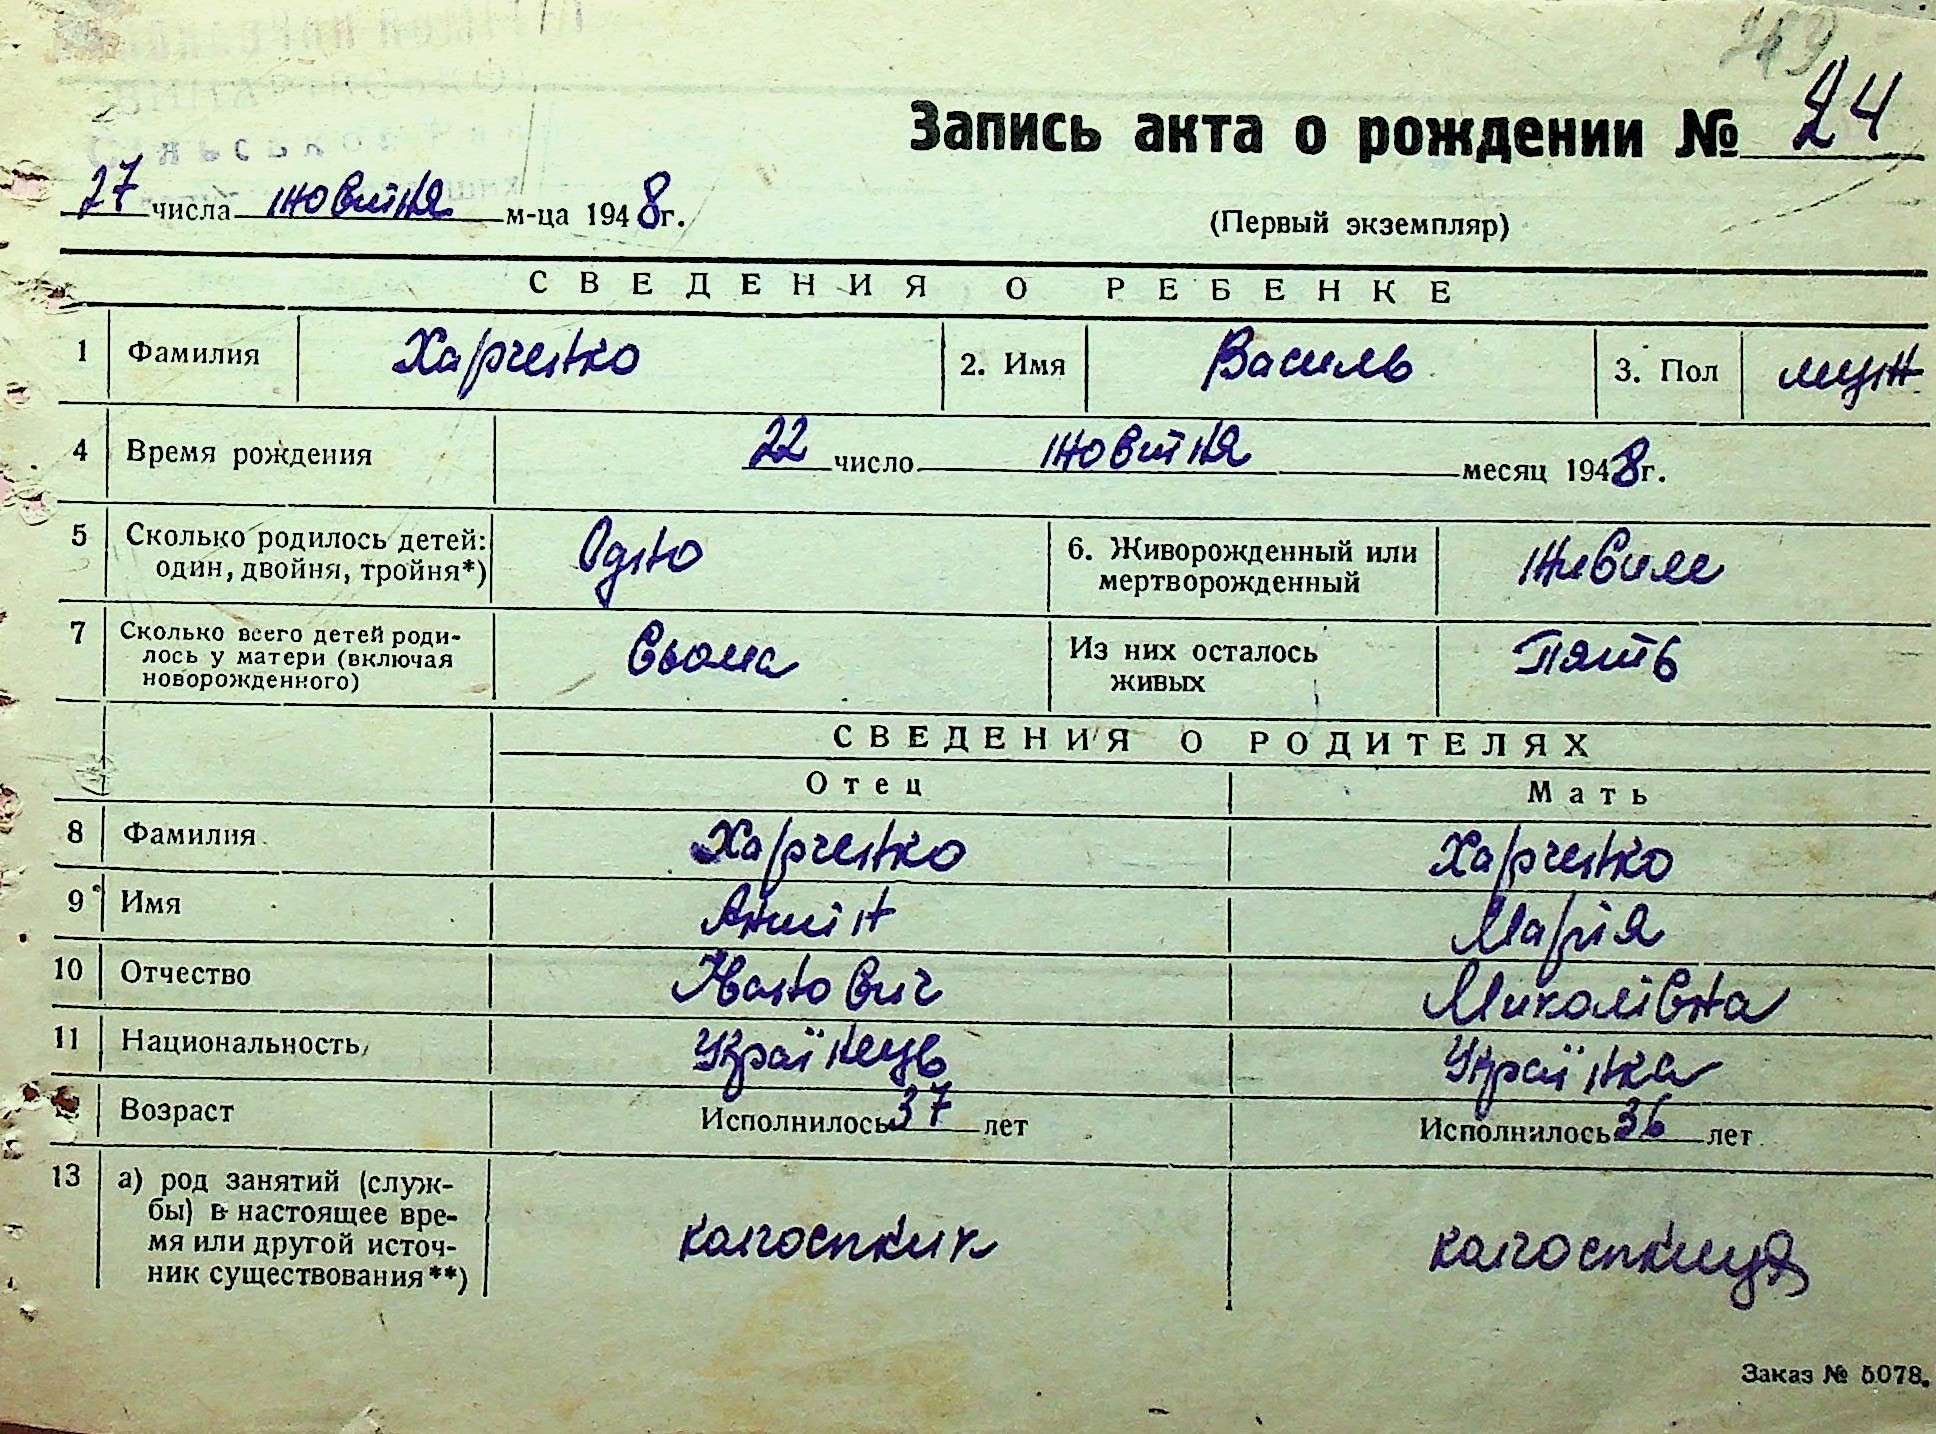 243
Запись акта о рождении № 24
27 числа жовтня м-ца 1948 г.
(Первый экземпляр)
СВЕДЕНИЯ О РЕБЕНКЕ
1 Фамилия Харченко 2. Имя Василь 3. Пол муж
4 Время рождения 22 число жовтня месяц 1948 г.
5 Сколько родилось детей: Одно 6. Живорожденный или Живим
один, двойня, тройня*) мертворожденный
7 Сколько всего детей роди- Сьома Из них осталось Пять
лось у матери (включая живых
новорожденного)
СВЕДЕНИЯ О РОДИТЕЛЯХ
Отец Мать
8 Фамилия Харченко Харченко
9 Имя Антін Марія
10 Отчество Іванович Миколівна
11 Национальность Українець Українка
Возраст Исполнилось 37 лет Исполнилось 36 лет
13 а) род занятий (служ-
бы) в настоящее вре- колгоспник колгоспниця
мя или другой источ-
ник существования**)
Заказ № 5078.